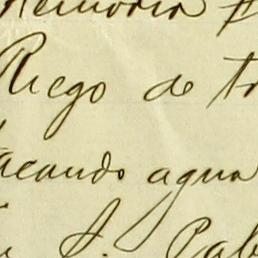 Memoria
Riego de tr
acando agua
S. Pab